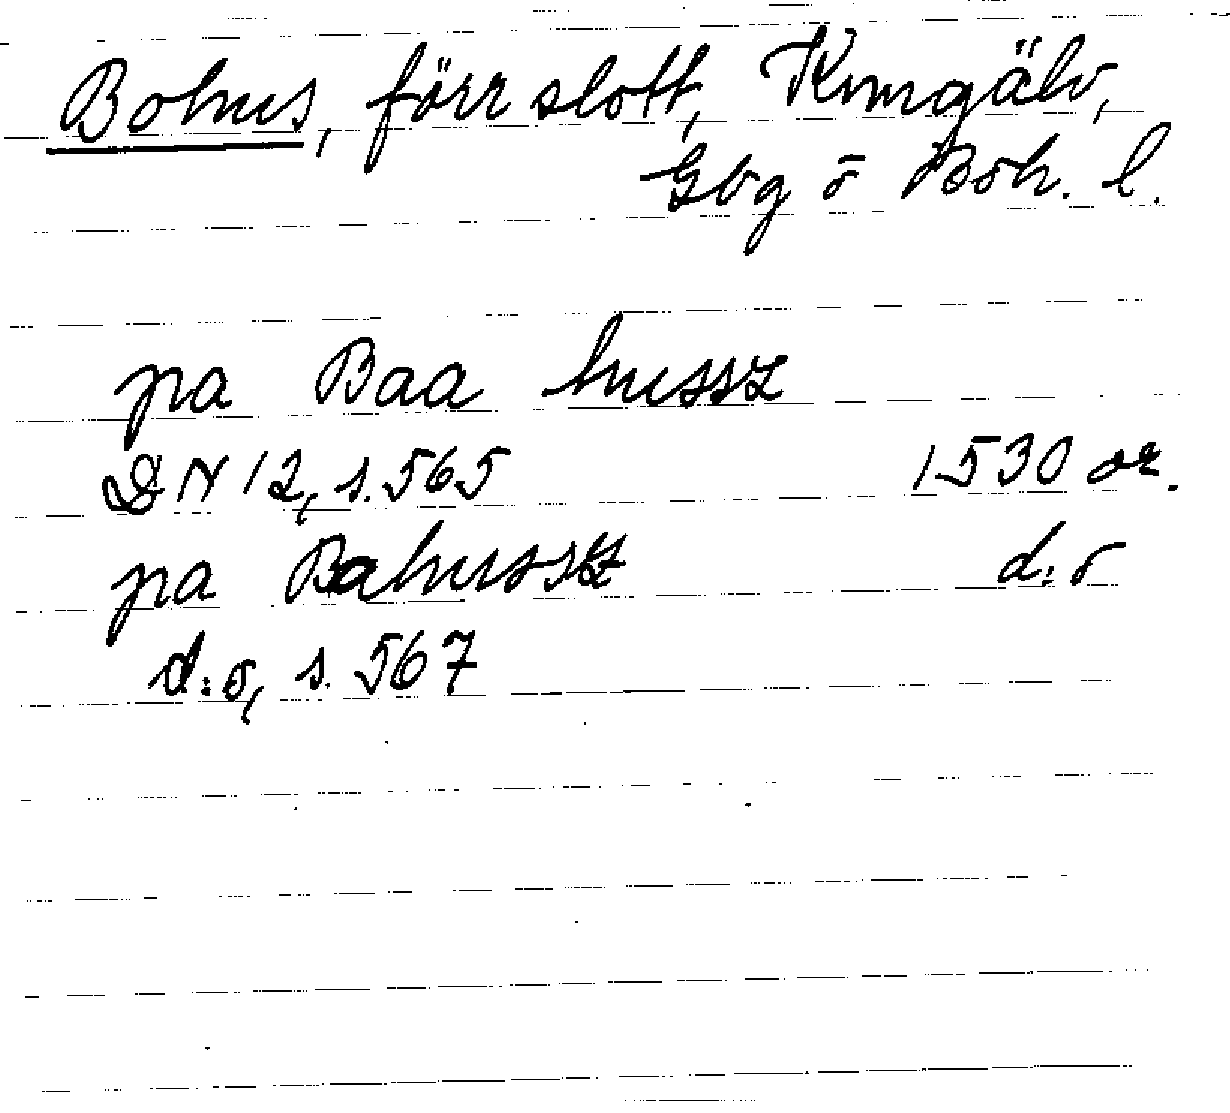 Bohus, förr slott, Kungälv,
Gbg o Boh. l.
pa Baa hussz
DN 12, s. 565 1530 or.
pa Bahussz d:o
d:o, s. 567